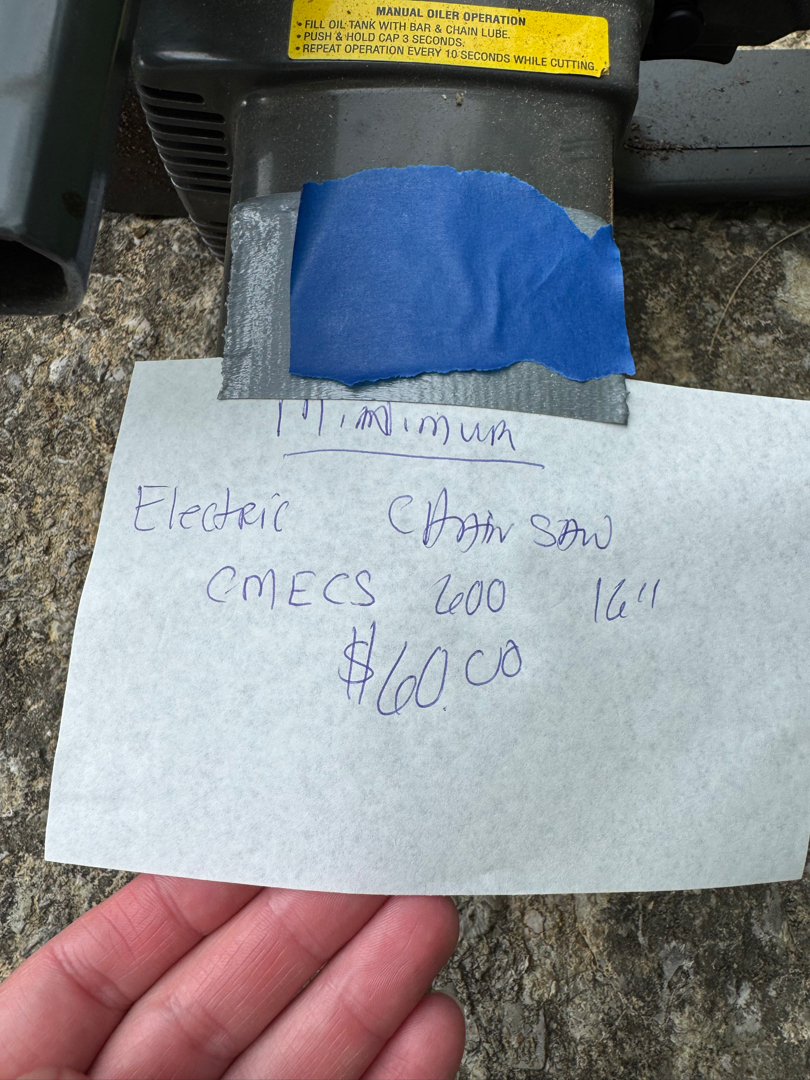 MANUAL OILER OPERATION
• FILL OIL TANK WITH BAR & CHAIN LUBE.
• PUSH & HOLD CAP 3 SECONDS.
• REPEAT OPERATION EVERY 10 SECONDS WHILE CUTTING.
Minimum
Electric Chain Saw
CMECS 600 16"
$60.00